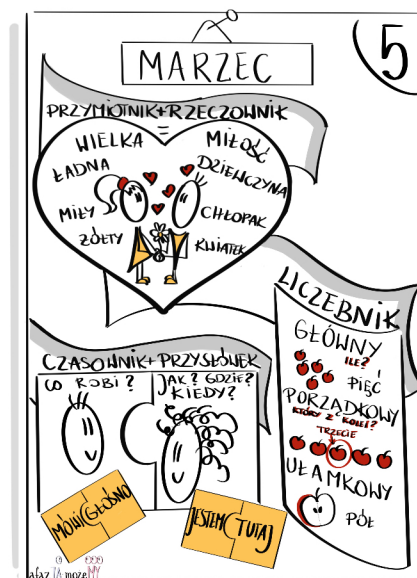 5
MARZEC
PRZYMIOTNIK+RZECZOWNIK
=
WIELKA MIŁOŚĆ
ŁADNA DZIEWCZYNA
MIŁY CHŁOPAK
ŻÓŁTY KWIATEK
LICZEBNIK
GŁÓWNY
ILE?
PIĘĆ
PORZĄDKOWY
KTÓRY Z KOLEI?
TRZECIE
UŁAMKOWY
PÓŁ
CZASOWNIK+PRZYSŁÓWEK
CO ROBI? JAK? GDZIE?
KIEDY?
MÓWIĆ GŁOŚNO
JESTEM TUTAJ
może MY